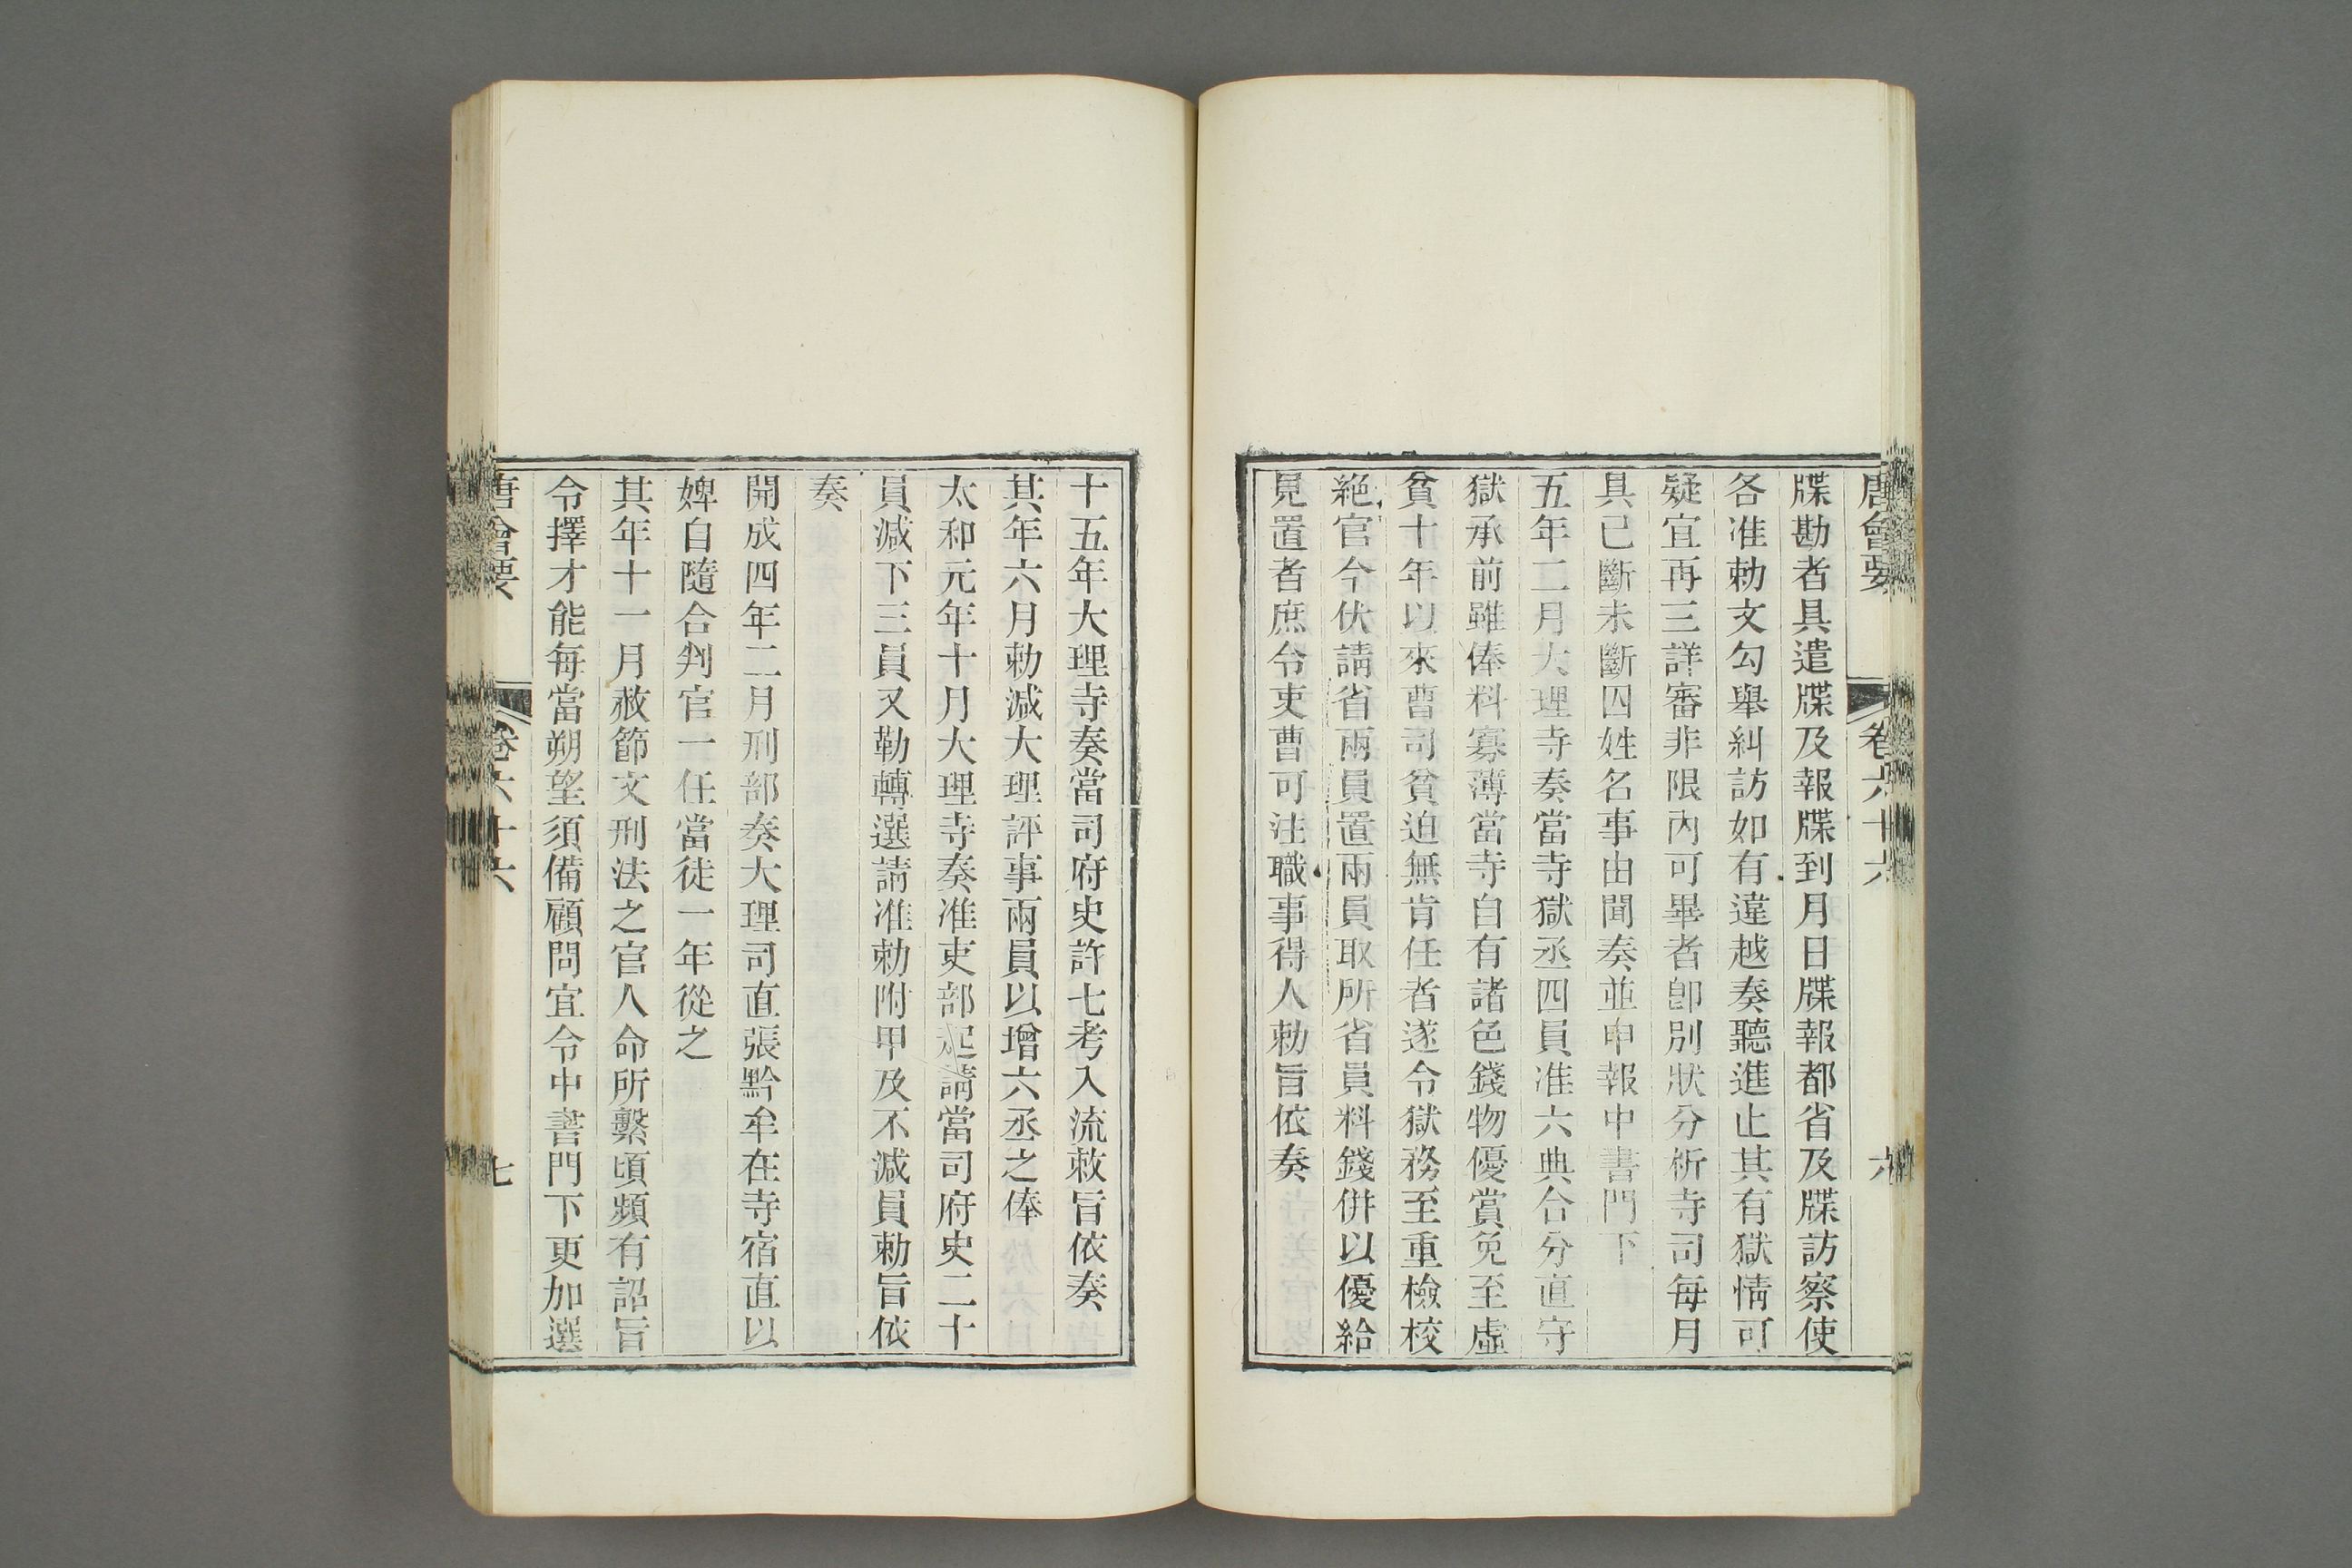 唐會要 卷六十六 六
牒勘者具遣牒及報牒到月日牒報都省及牒訪察使
各准勅文勾舉糾訪如有違越奏聽進止其有獄情可
疑宜再三詳審非限內可畢者卽別狀分析寺司每月
具已斷未斷囚姓名事由聞奏並申報中書門下
五年二月大理寺奏當寺獄丞四員准六典合分直守
獄承前雖俸料寡薄當寺自有諸色錢物優賞免至虛
貧十年以來曹司貧迫無肯任者遂令獄務至重檢校
絕官今伏請省兩員置兩員取所省員料錢併以優給
見置者庶令吏曹可注職事得人勅旨依奏
十五年大理寺奏當司府史許七考入流敕旨依奏
其年六月勅減大理評事兩員以增六丞之俸
太和元年十月大理寺奏准吏部起請當司府史二十
員減下三員又勒轉選請准勅附甲及不減員勅旨依
奏
開成四年二月刑部奏大理司直張黔牟在寺宿直以
婢自隨合判官一任當徒一年從之
其年十一月赦節文刑法之官人命所繫頃頻有詔旨
令擇才能每當朔望須備顧問宜令中書門下更加選
唐會要 卷六十六 七